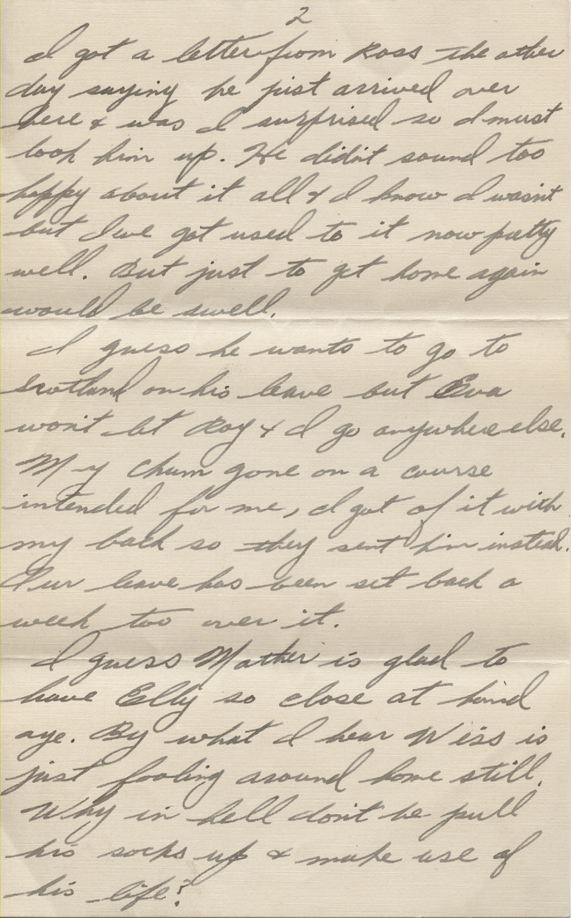 2
I got a letter from Ross the other
day saying he just arrived over
here & was I surprised so I must
look him up. He didn't sound too
happy about it all & I know I wasn't
but I've got used to it now pretty
well. But just to get home again
would be swell.
I guess he wants to go to
Scotland on his leave but Eva
won't let Roy & I go anywhere else.
My chum gone on a course
intended for me, I got of it with
my back so they sent him instead.
Our leave has been set back a
week too over it.
I guess Mother is glad to
have Elly so close at hand
aye. By what I hear Wiss is
just fooling around home still.
Why in hell don't he pull
his socks up & make use of
his life?